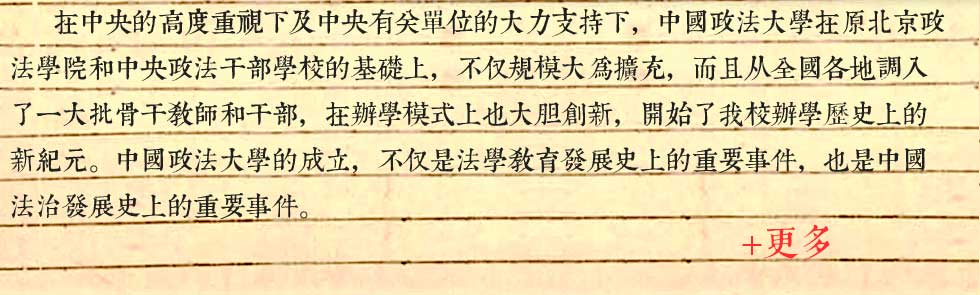 在中央的高度重視下及中央有关單位的大力支持下，中國政法大學在原北京政
法學院和中央政法干部學校的基礎上，不仅規模大爲擴充，而且从全國各地調入
了一大批骨干教師和干部，在辦學模式上也大胆創新，開始了我校辦學歷史上的
新紀元。中國政法大學的成立，不仅是法學教育發展史上的重要事件，也是中國
法治發展史上的重要事件。
+更多